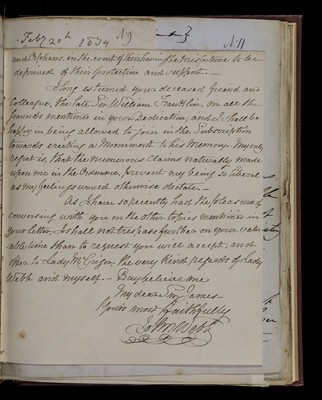 Feby 20th 1834
No 9
No 11
and Orphans, in the event of their having the misfortune to be
deprived of their protection and support. —
I long esteemed your deceased friend and
Colleague, the late Sir William Franklin, on all the
grounds mentioned in your Dedication, and I shall be
happy in being allowed to join in the Subscription
towards erecting a Monument to his Memory. My only
regret is, that the numerous claims naturally made
upon me in the Ordnance, prevent my being so liberal
as my feelings would otherwise dictate. —
As I have so recently had the pleasure of
conversing with you on the other topics mentioned in
your letter, I shall not trespass further on your valu-
able time than to request you will accept, and
offer to Lady McGrigor the very kind regards of Lady
Webb and myself. — Pray believe me
My dear Sir James
Yours most faithfully
Jno Webb